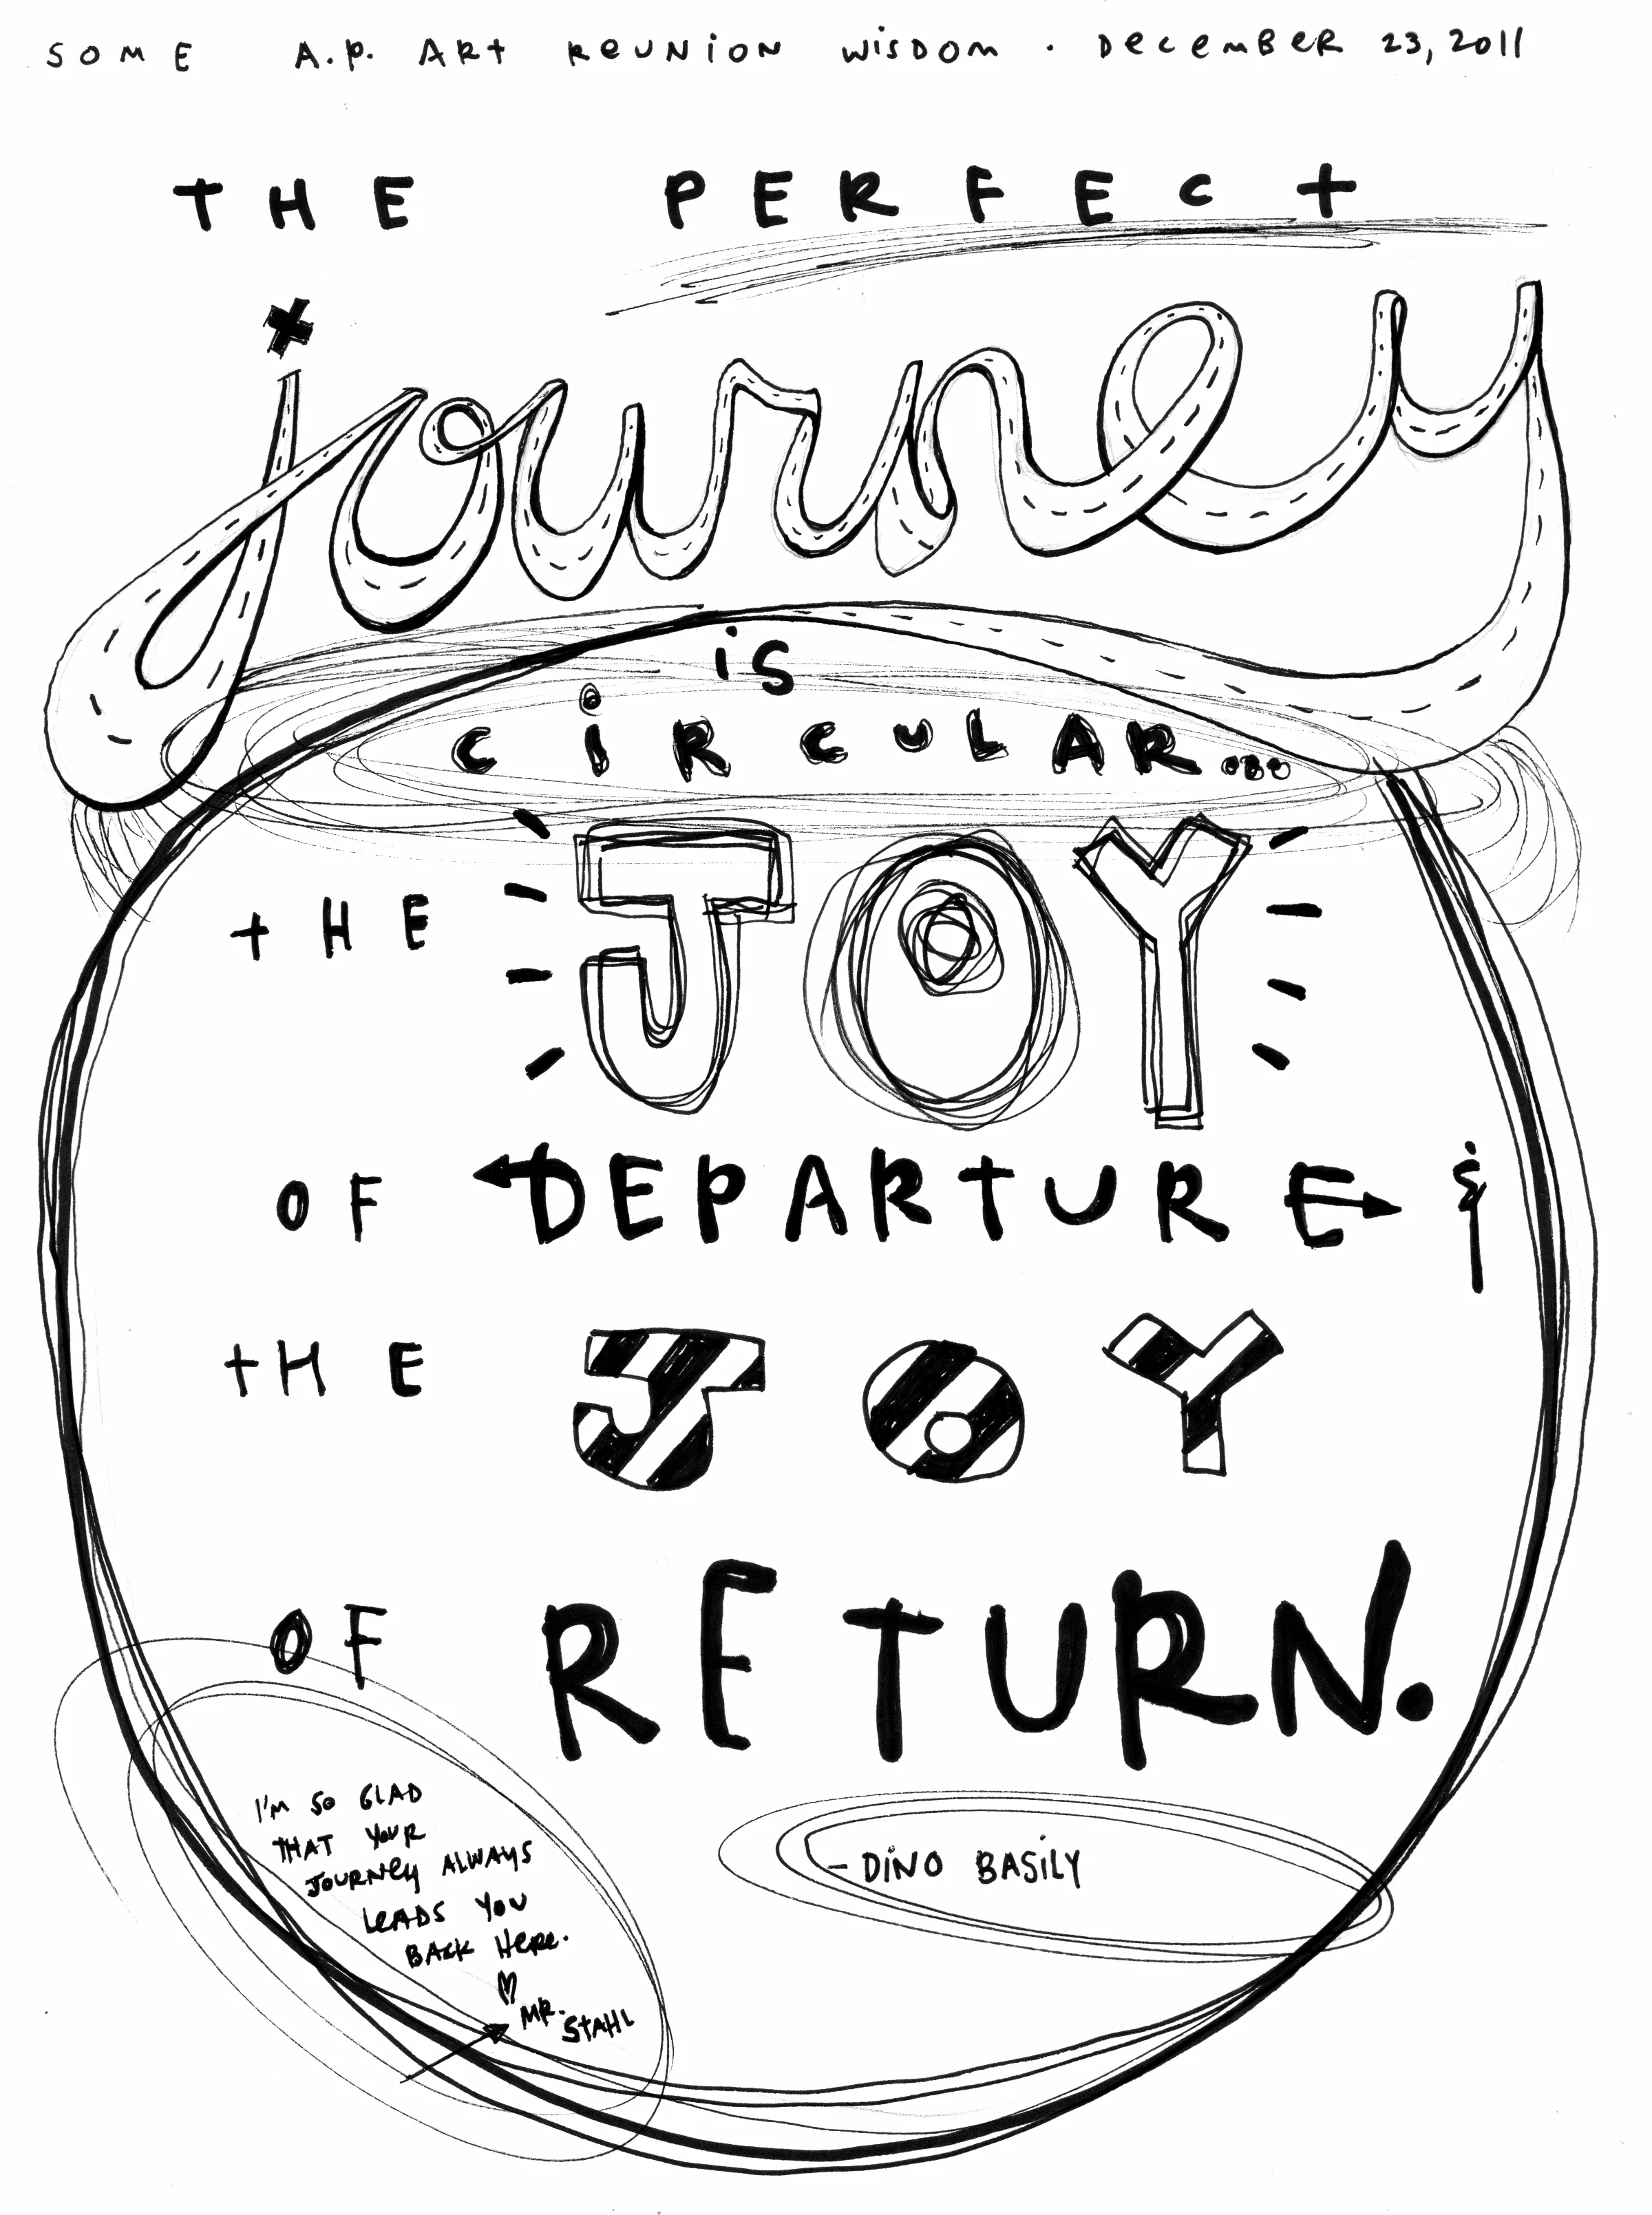 SOME A.P. ART REUNION WISDOM · DECEMBER 23, 2011
THE PERFECT
journey
is
CiRCULAR...
THE JOY
OF DEPARTURE &
THE JOY
OF RETURN.
I'M SO GLAD
THAT YOUR
JOURNEY ALWAYS
LEADS YOU
BACK HERE.
♡
MR.
STAHL
- DiNO BASiLY